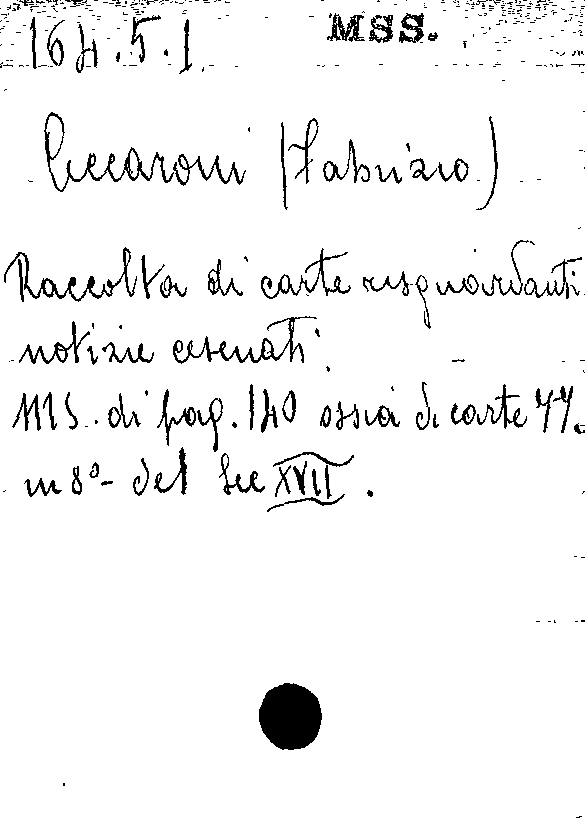 164.5.1. MSS.
Ceccaroni (Fabrizio)
Raccolta di carte risguardanti
notizie cesenati.
MS. di pag. 140 ossia di carte 77.
in 8º- del Sec XVII.